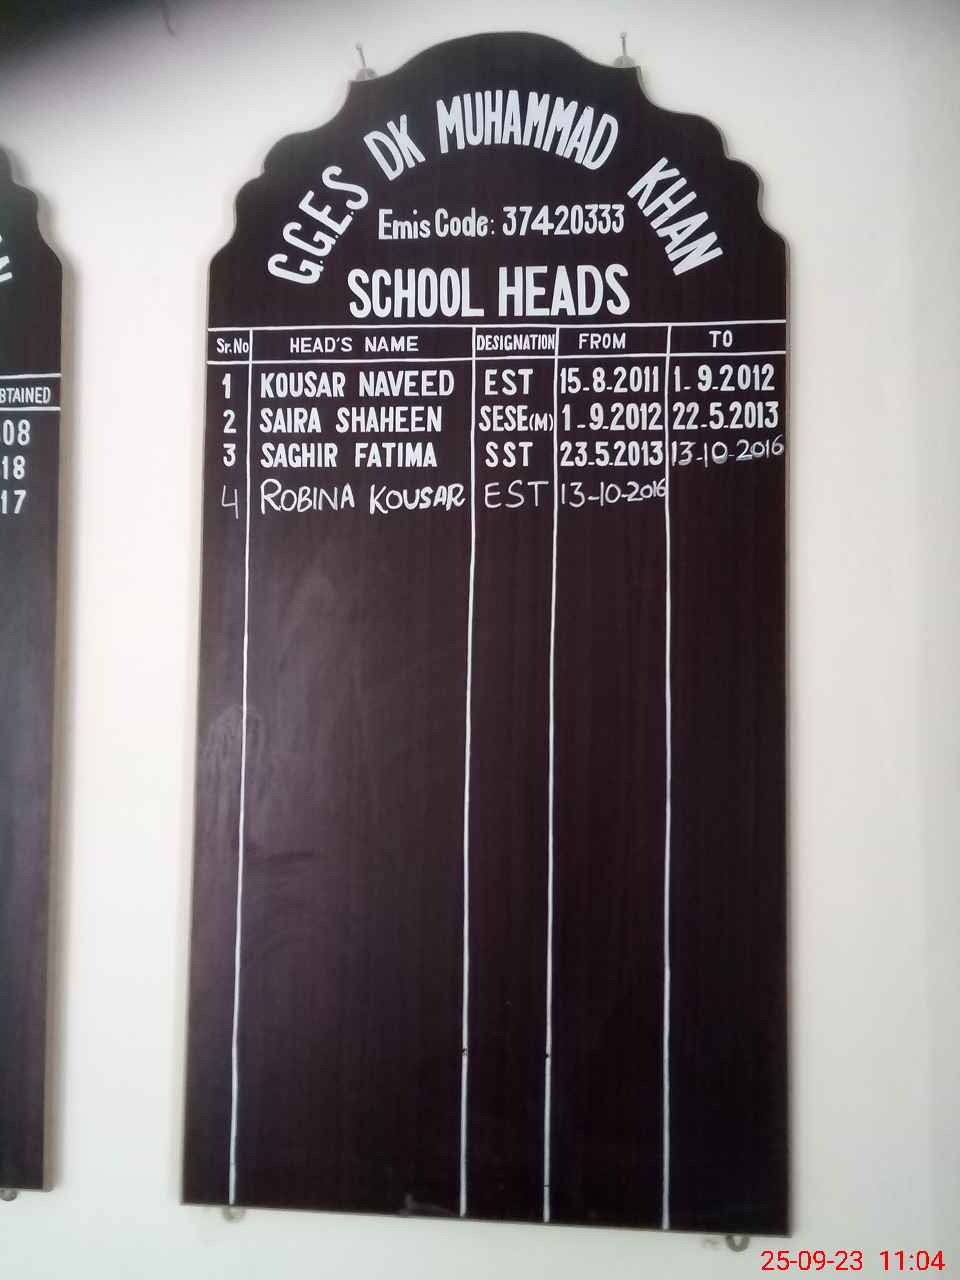 G.G.E.S DK MUHAMMAD KHAN
Emis Code: 37420333
SCHOOL HEADS
Sr.No HEAD'S NAME DESIGNATION FROM TO
1 KOUSAR NAVEED EST 15.8.2011 1-9.2012
2 SAIRA SHAHEEN SESE(M) 1-9.2012 22.5.2013
3 SAGHIR FATIMA SST 23.5.2013 13-10-2016
4 ROBINA KOUSAR EST 13-10-2016
BTAINED
08
18
17
25-09-23 11:04